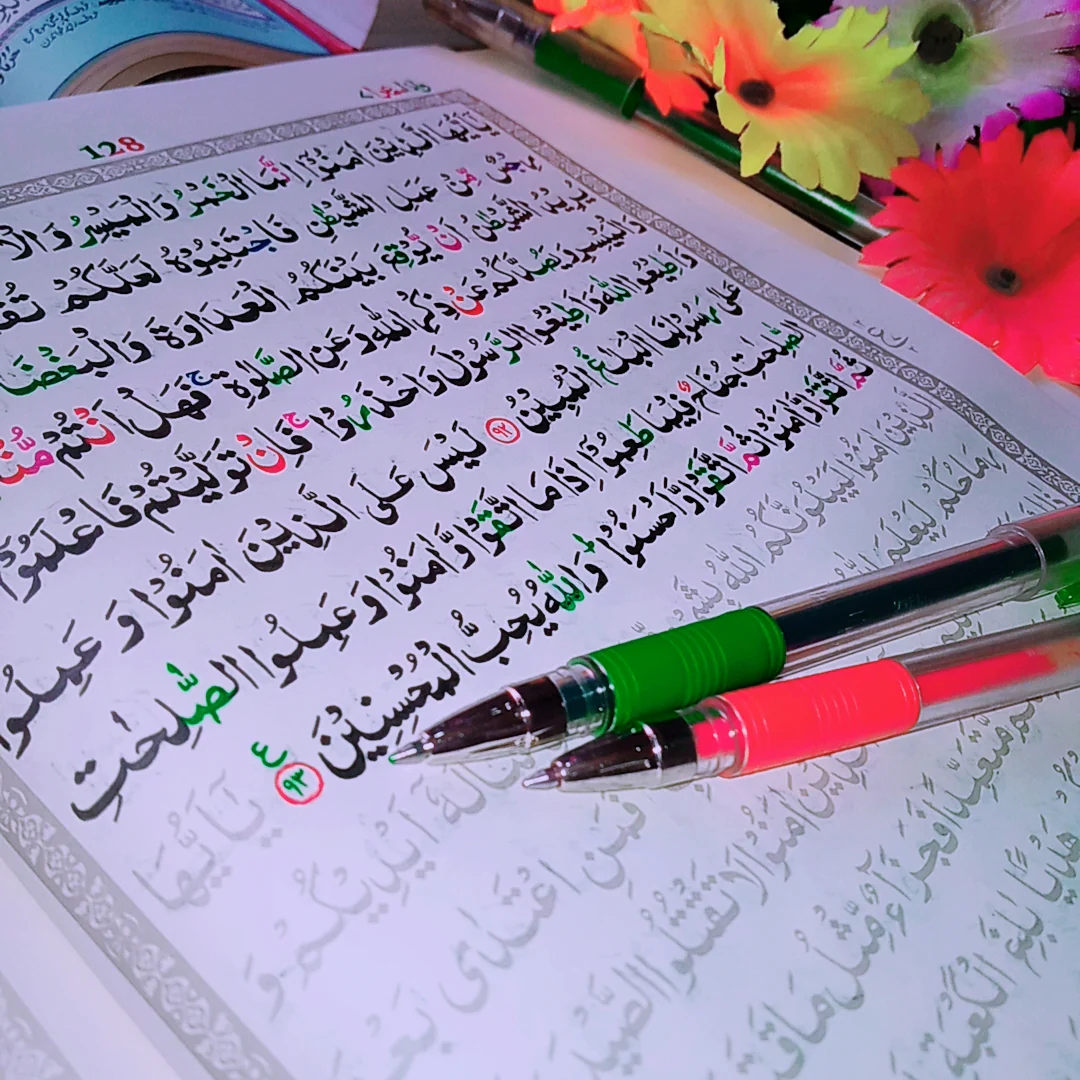 128
يٰۤاَيُّهَا الَّذِيْنَ اٰمَنُوْۤا اِنَّمَا الْخَمْرُ وَالْمَيْسِرُ وَالْاَ
مِّنْ عَمَلِ الشَّيْطٰنِ فَاجْتَنِبُوْهُ لَعَلَّكُمْ تُفْ
يُرِيْدُ الشَّيْطٰنُ اَنْ يُّوْقِعَ بَيْنَكُمُ الْعَدَاوَةَ وَالْبَغْضَا
وَالْمَيْسِرِ وَيَصُدَّكُمْ عَنْ ذِكْرِ اللّٰهِ وَعَنِ الصَّلٰوةِ ۚ فَهَلْ اَنْتُمْ مُّنْ
وَاَطِيْعُوا اللّٰهَ وَاَطِيْعُوا الرَّسُوْلَ وَاحْذَرُوْا ۚ فَاِنْ تَوَلَّيْتُمْ فَاعْلَمُوْۤا
عَلٰى رَسُوْلِنَا الْبَلٰغُ الْمُبِيْنُ ۹۲ لَيْسَ عَلَى الَّذِيْنَ اٰمَنُوْا وَ عَمِلُوا
الصّٰلِحٰتِ جُنَاحٌ فِيْمَا طَعِمُوْۤا اِذَا مَا اتَّقَوْا وَّاٰمَنُوْا وَعَمِلُوا الصّٰلِحٰتِ
ثُمَّ اتَّقَوْا وَّاٰمَنُوْا ثُمَّ اتَّقَوْا وَّاَحْسَنُوْا ؕ وَاللّٰهُ يُحِبُّ الْمُحْسِنِيْنَ ۹۳ ع
يٰۤاَيُّهَا
الَّذِيْنَ اٰمَنُوْا لَيَبْلُوَنَّكُمُ اللّٰهُ بِشَيْ تَنَالُهٗۤ اَيْدِيْكُمْ وَ
رِمَاحُكُمْ لِيَعْلَمَ اللّٰهُ فَمَنِ اعْتَدٰى بَعْ
الَّذِيْنَ اٰمَنُوْا لَا تَقْتُلُوا الصَّيْدَ
مُّتَعَمِّدًا فَجَزَآءٌ مِّثْلُ مَا قَتَ
هَدْيًۢا بٰلِغَ الْكَعْبَةِ